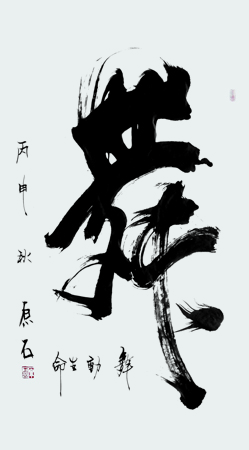 舞
舞動生命
丙申
原石